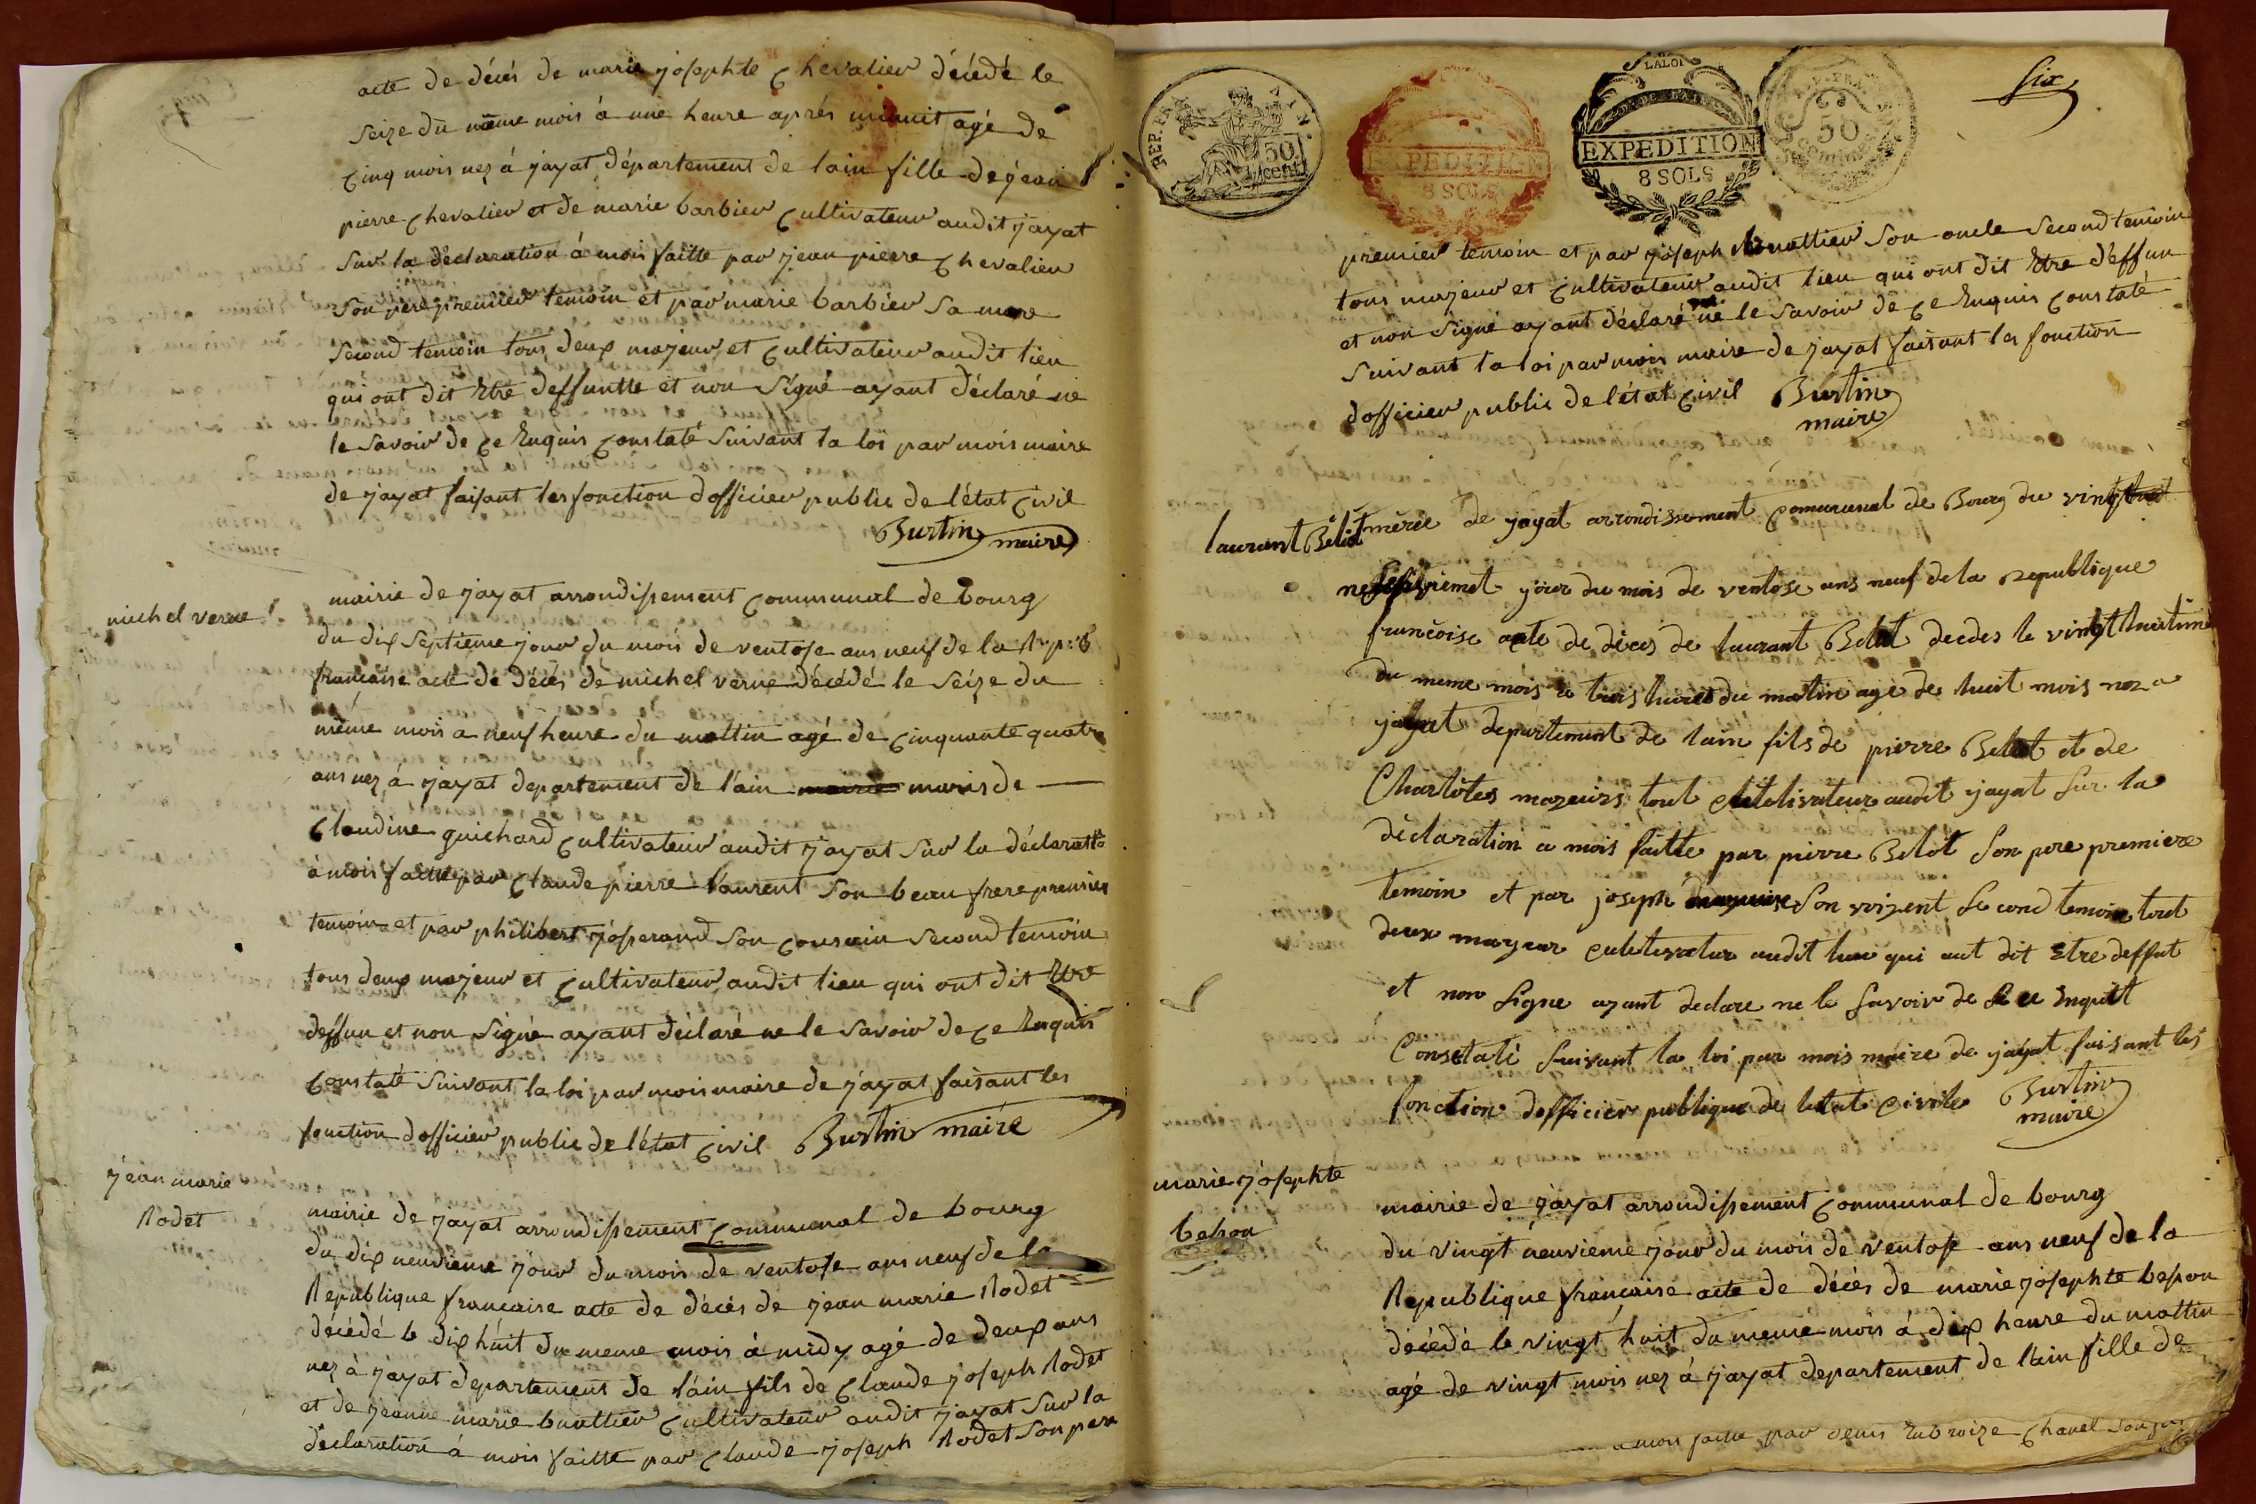 acte de décés de marie josephte chevalier décédé le
seize du même mois à une heure aprés minuit agé de
cinq mois nez à jayat département de lain fille de jean
pierre chevalier et de marie barbier cultivateur audit jayat
sur la déclaration à mois faitte par jean pierre chevalier
son pere premier temoin et par marie barbier sa mere
second temoin tous deux majeur et cultivateur audit lieu
qui ont dit Etre deffuntte et non signé ayant déclaré ne
le savoir de ce Enquis constaté suivant la loi par mois maire
de jayat faisant les fonction dofficier public de l'état civil
Burtin maire
michel verne
mairie de jayat arrondissement communal de bourg
du dix septieme jour du mois de ventose ans neuf de la Repub
francaise acte de décès de michel verne décédé le seize du
même mois a neuf heure du mattin agé de cinquante quatre
ans nez à jayat departement de l'ain maris de
claudine guichard cultivateur audit jayat sur la déclaratio
à mois faitte par claude pierre laurent son beau frere premier
temoin et par philibert josserand son cousain second temoin
tous deux majeur et cultivateur audit lieu qui ont dit Etre
deffun et non signé ayant déclaré ne le savoir de ce Enquis
constaté suivant la loi par mois maire de jayat faisant les
fonction dofficier public de l'état civil Burtin maire
jean marie
Rodet
mairie de jayat arrondissement communal de bourg
du dix neuvieme jour du mois de ventose ans neuf de la
République francaise acte de décés de jean marie Rodet
décédé le dix huit du meme mois à midy agé de deux ans
nez à jayat departement de l'ain fils de claude joseph Rodet
et de jeanne marie buattier cultivateur audit jayat sur la
déclaration à mois faitte par claude joseph Rodet son pere
REP. FRA
50
cent
EXPEDITION
8 SOLS
LA LOI
EXPEDITION
8 SOLS
50
six
premier temoin et par joseph buattier son oncle second temoin
tous majeur et cultivateur audit lieu qui ont dit Etre deffun
et non signé ayant déclaré ne le savoir de ce Enquis constaté
suivant la loi par mois maire de jayat faisant les fonction
dofficier public de l'état civil Burtin
maire
laurant Belot
mérie de jayat arrondissement comunal de Bourg du vingt
jour du mois de ventose ans neuf de la republique
francoise acte de déces de laurant Belot decdes le vingt huitime
du meme mois a trois hures du matin age de huit mois nez a
jayat departement de lain fils de pierre Belot et de
Charlotes mazuirs tout cultativateur audit jayat sur la
déclaration a mois faitte par pierre Belot son pere premiere
temoin et par joseph son voizent second temoin tout
deux mayeur culetivatur audit lieu qui ont dit Etre deffut
et non signe ayant declare ne le savoir de ce Enquit
Consetaté suivant la loi par mois maire de jayat faisant les
fonction dofficier publique de letat civile Burtin
maire
marie josephte
besson
mairie de jayat arrondissement communal de bourg
du vingt neuvieme jour du mois de ventose ans neuf de la
Republique francaise acte de décés de marie josephte besson
décédé le vingt huit du meme mois à dix heure du mattin
agé de vingt mois nez à jayat departement de l'ain fille de
a mois faitte par denis Enbroize chanel son